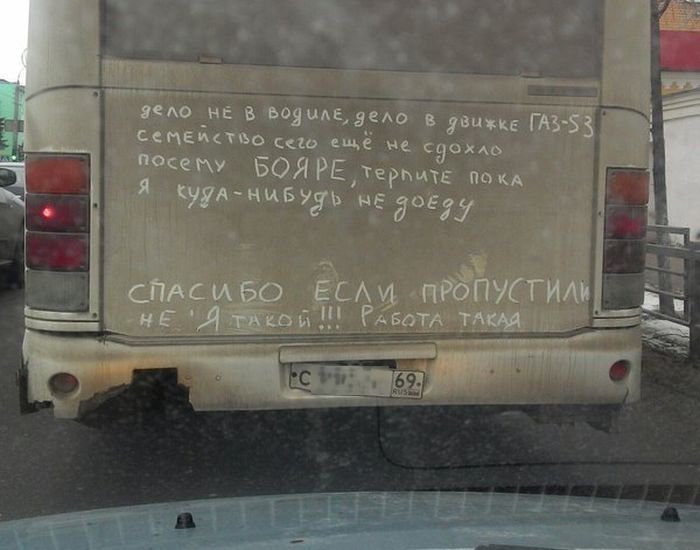 дело не в водиле, дело в движке ГАЗ-53
семейство сего ещё не сдохло
посему БОЯРЕ, терпите пока
я куда-нибудь не доеду
СПАСИБО ЕСЛИ ПРОПУСТИЛИ
НЕ Я ТАКОЙ!!! РАБОТА ТАКАЯ
С 69
RUS